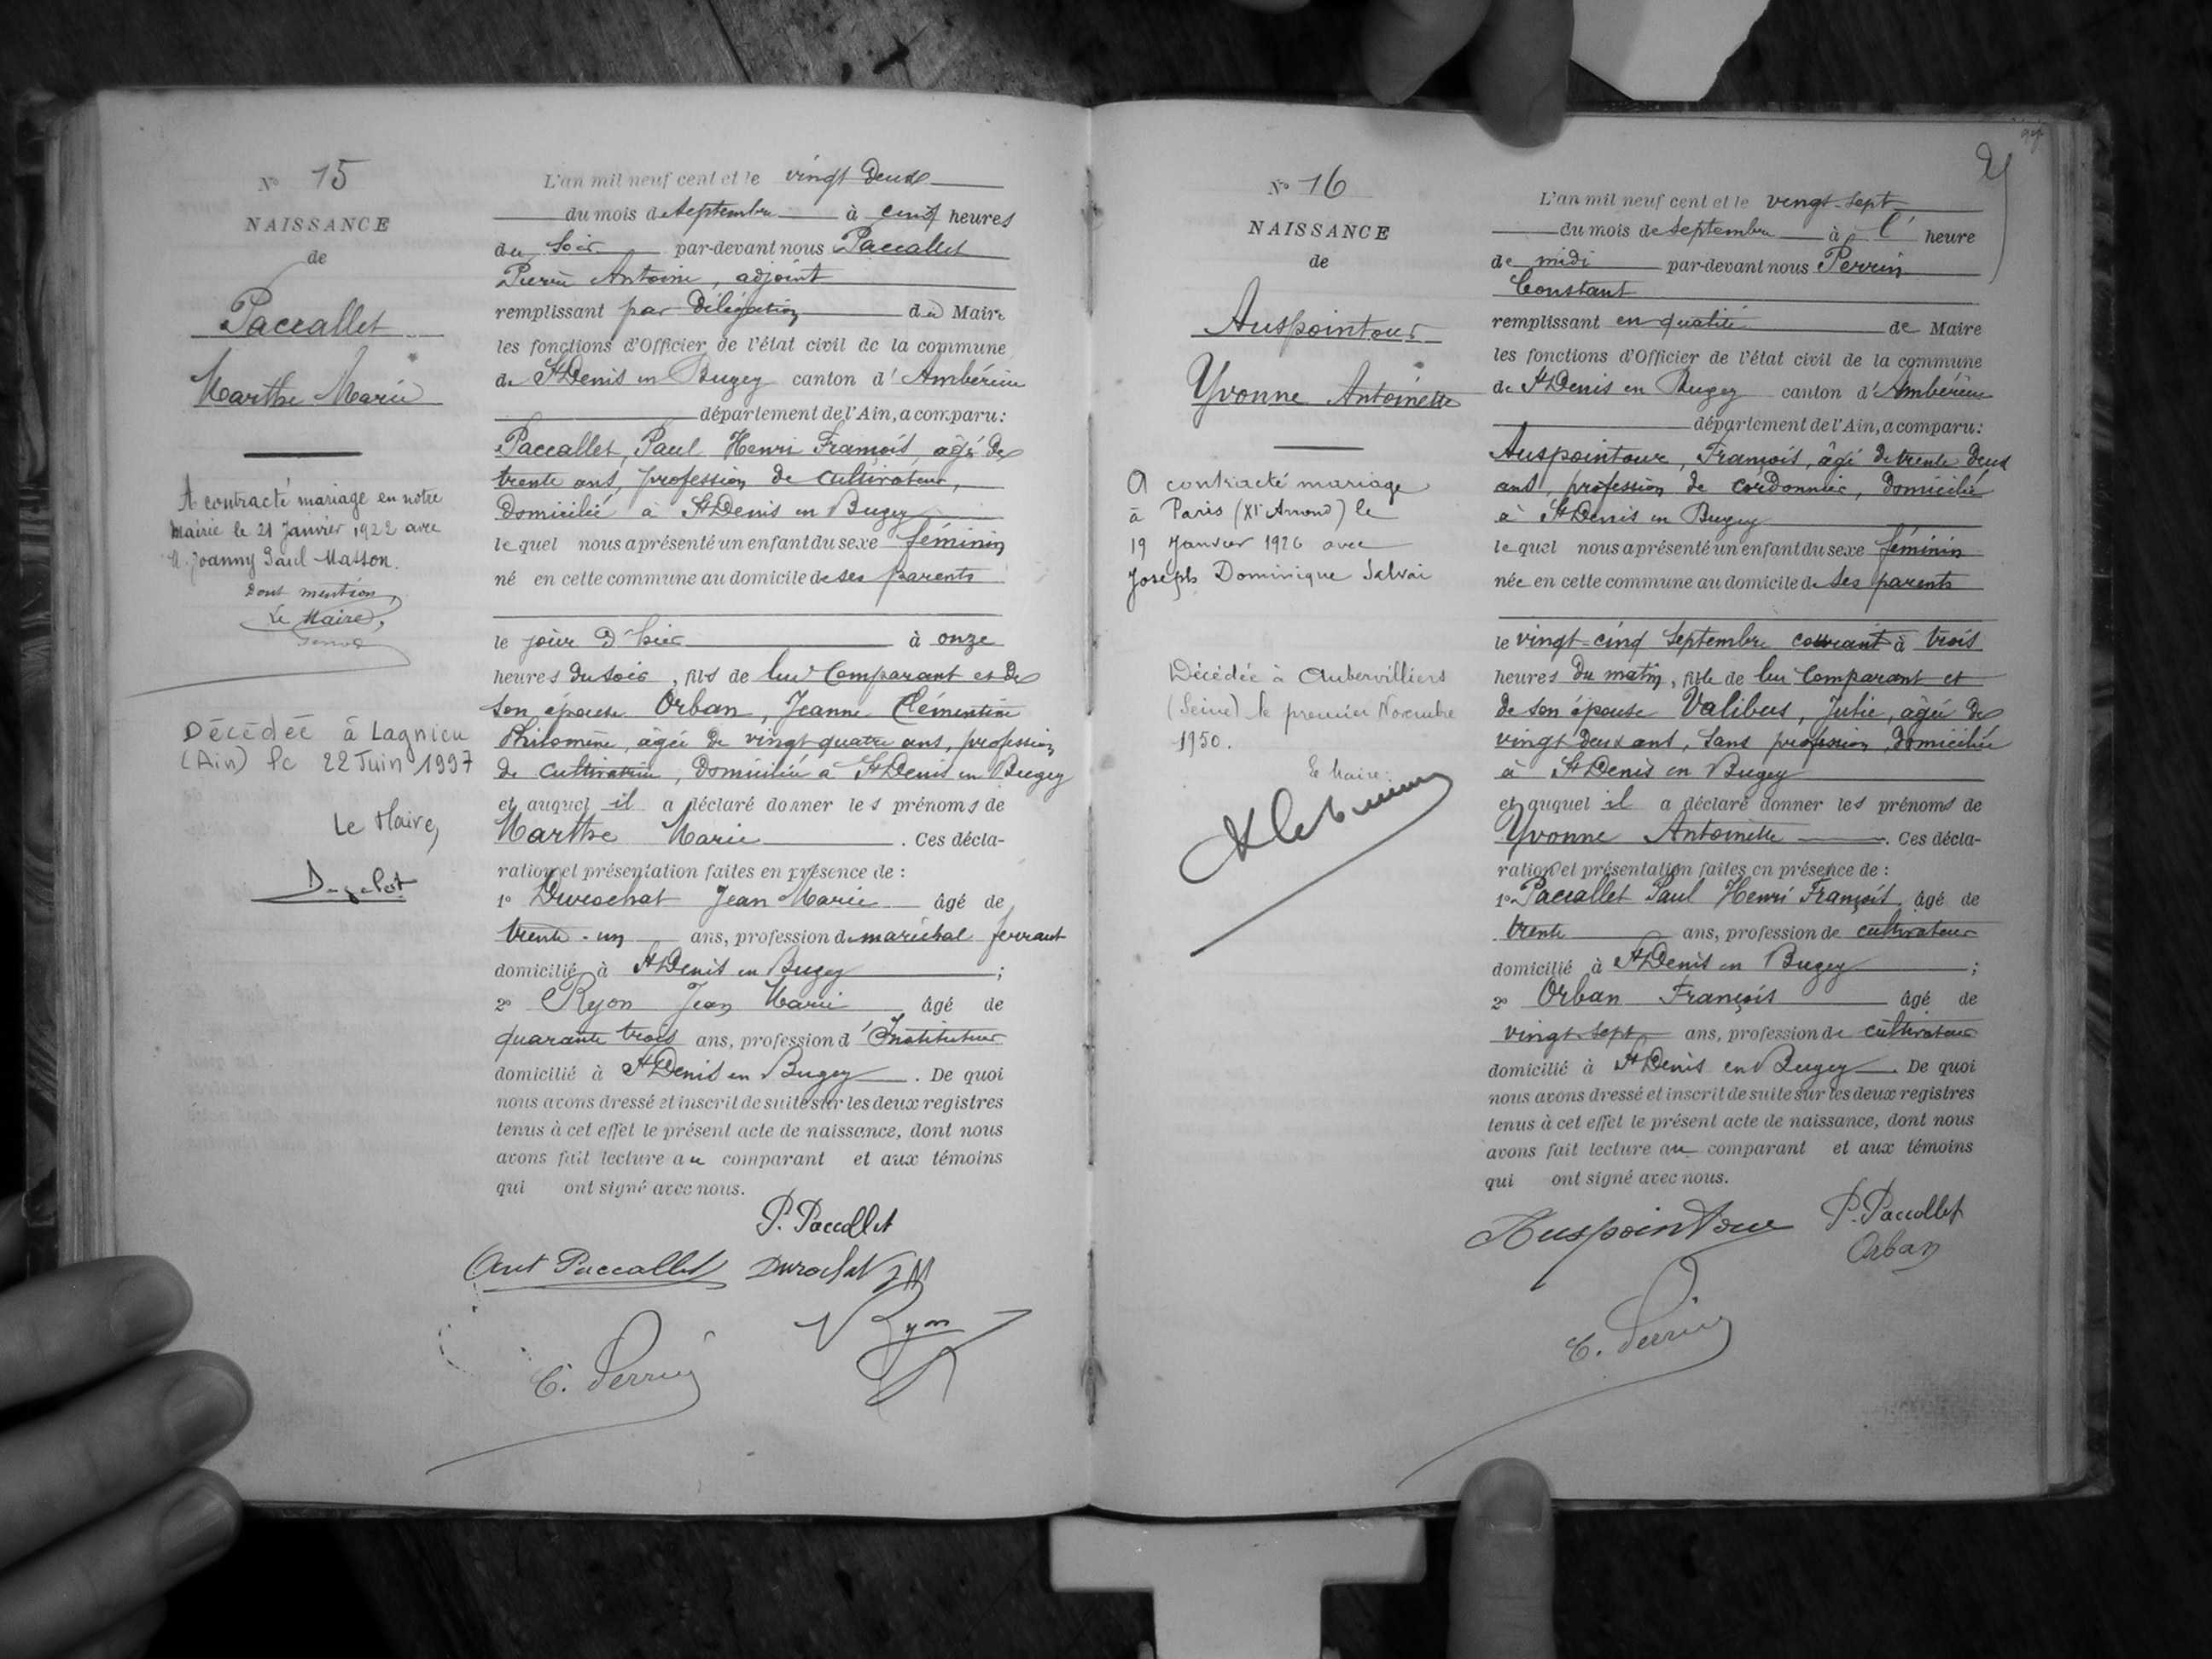 N° 15
NAISSANCE
de
Paccallet
Marthe Marie
A contracté mariage en notre
Mairie le 21 Janvier 1922 avec
M. Joanny Paul Masson.
Dont mention,
Le Maire,
Décédée à Lagnieu
(Ain) le 22 Juin 1997
Le Maire,
L'an mil neuf cent et le vingt deux
du mois de Septembre à cinq heures
du soir par-devant nous Paccallet
Pierre Antoine, adjoint
remplissant par délégation du Maire
les fonctions d'Officier de l'état civil de la commune
de St Denis en Bugey canton d'Ambérieu
département de l'Ain, a comparu :
Paccallet, Paul Henri François, âgé de
trente ans, profession de cultivateur,
domicilié à St Denis en Bugey
lequel nous a présenté un enfant du sexe féminin
né en cette commune au domicile de ses parents
le jour d'hier à onze
heures du soir, fils de lui comparant et de
son épouse Orban, Jeanne Clémentine
Philomène, âgée de vingt quatre ans, profession
de cultivatrice, domiciliée à St Denis en Bugey
et auquel il a déclaré donner les prénoms de
Marthe Marie . Ces décla-
ration et présentation faites en présence de :
1° Durochat Jean Marie âgé de
trente-un ans, profession de maréchal ferrant
domicilié à St Denis en Bugey ;
2° Ryon Jean Marie âgé de
quarante trois ans, profession d'Instituteur
domicilié à St Denis en Bugey . De quoi
nous avons dressé et inscrit de suite sur les deux registres
tenus à cet effet le présent acte de naissance, dont nous
avons fait lecture au comparant et aux témoins
qui ont signé avec nous.
P. Paccallet
Ant Paccallet Durochat JM
Ryon
C. Perrin
N° 16
NAISSANCE
de
Auspointour
Yvonne Antoinette
A contracté mariage
à Paris (XIe Arrond) le
19 Janvier 1926 avec
Joseph Dominique Salvai
Décédée à Aubervilliers
(Seine) le premier Novembre
1950.
Le Maire:
L'an mil neuf cent et le vingt-sept
du mois de Septembre à l' heure
de midi par-devant nous Perrin
Constant
remplissant en qualité de Maire
les fonctions d'Officier de l'état civil de la commune
de St Denis en Bugey canton d'Ambérieu
département de l'Ain, a comparu :
Auspointour, François, âgé de trente deux
ans, profession de cordonnier, domicilié
à St Denis en Bugey
lequel nous a présenté un enfant du sexe féminin
née en cette commune au domicile de ses parents
le vingt-cinq Septembre courant à trois
heures du matin, fille de lui comparant et
de son épouse Valibus, Julie, âgée de
vingt deux ans, sans profession, domiciliée
à St Denis en Bugey
et auquel il a déclaré donner les prénoms de
Yvonne Antoinette . Ces décla-
ration et présentation faites en présence de :
1° Paccallet Paul Henri François âgé de
trente ans, profession de cultivateur
domicilié à St Denis en Bugey ;
2° Orban François âgé de
vingt-sept ans, profession de cultivateur
domicilié à St Denis en Bugey . De quoi
nous avons dressé et inscrit de suite sur les deux registres
tenus à cet effet le présent acte de naissance, dont nous
avons fait lecture au comparant et aux témoins
qui ont signé avec nous.
Auspointour P. Paccallet
Orban
C. Perrin